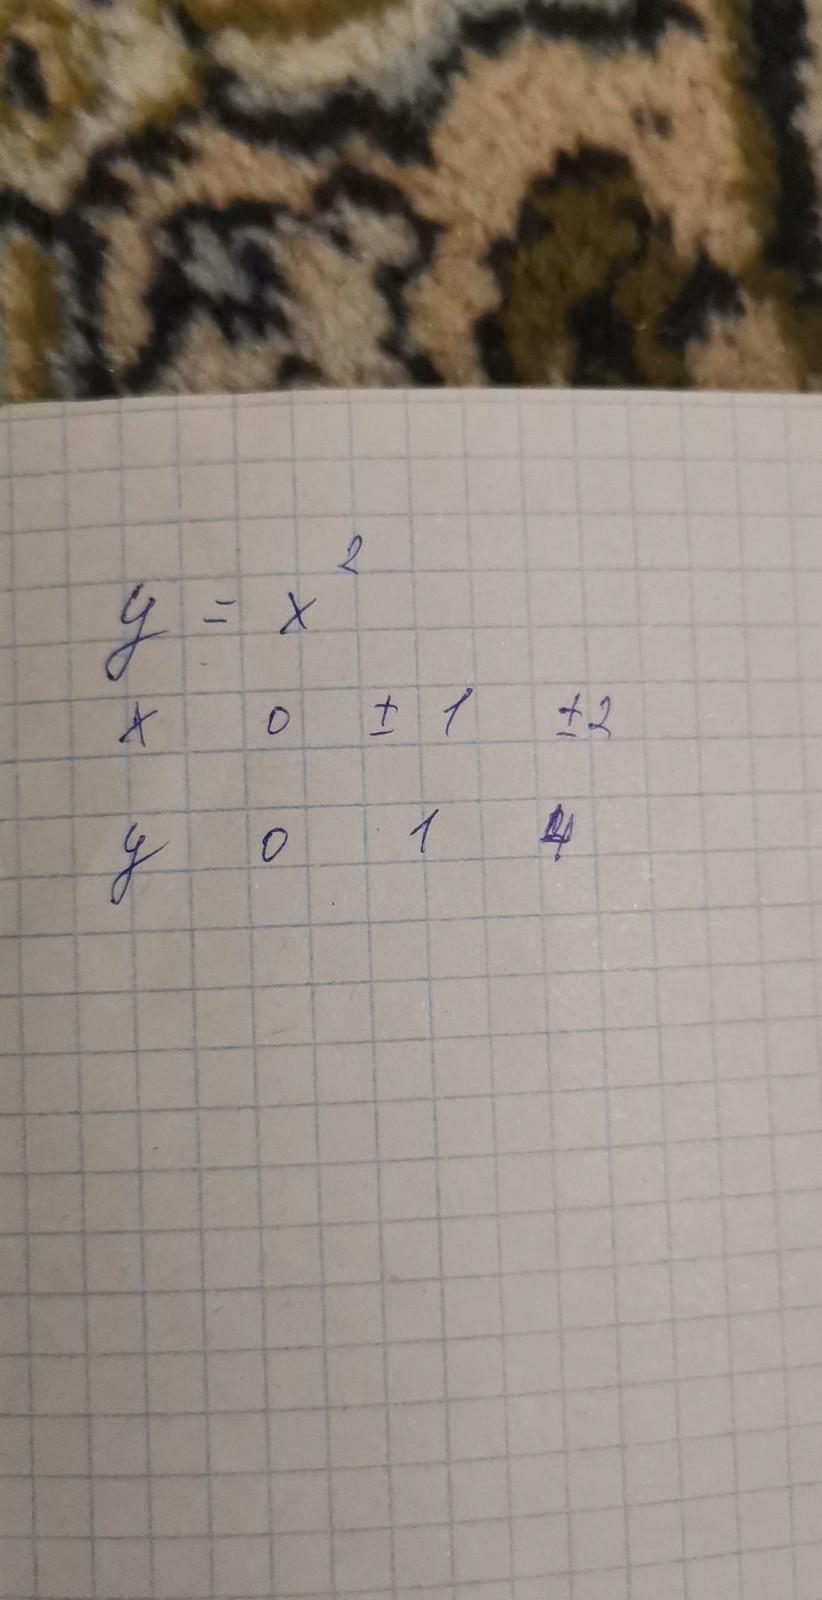 y = x²
x 0 ± 1 ±2
y 0 1 4